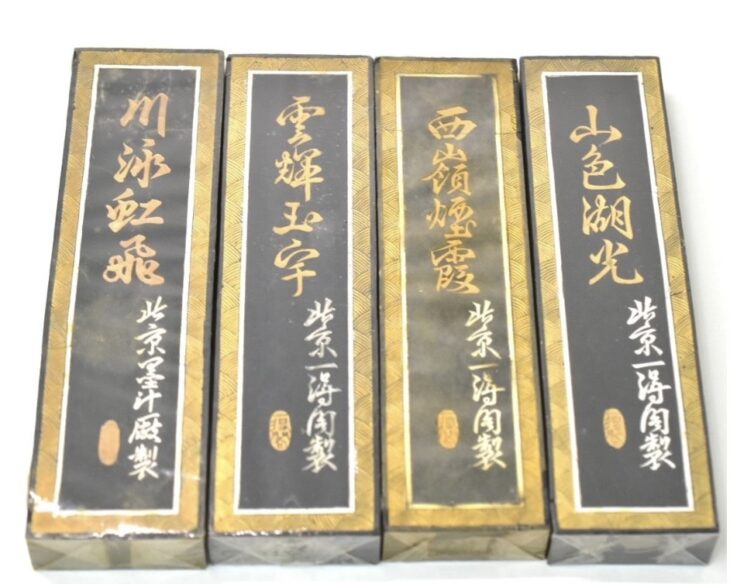 川泳虹飛
北京墨汁厰製
雲輝玉宇
北京一得阁製
西嶺煙霞
北京一得阁製
山色湖光
北京一得阁製